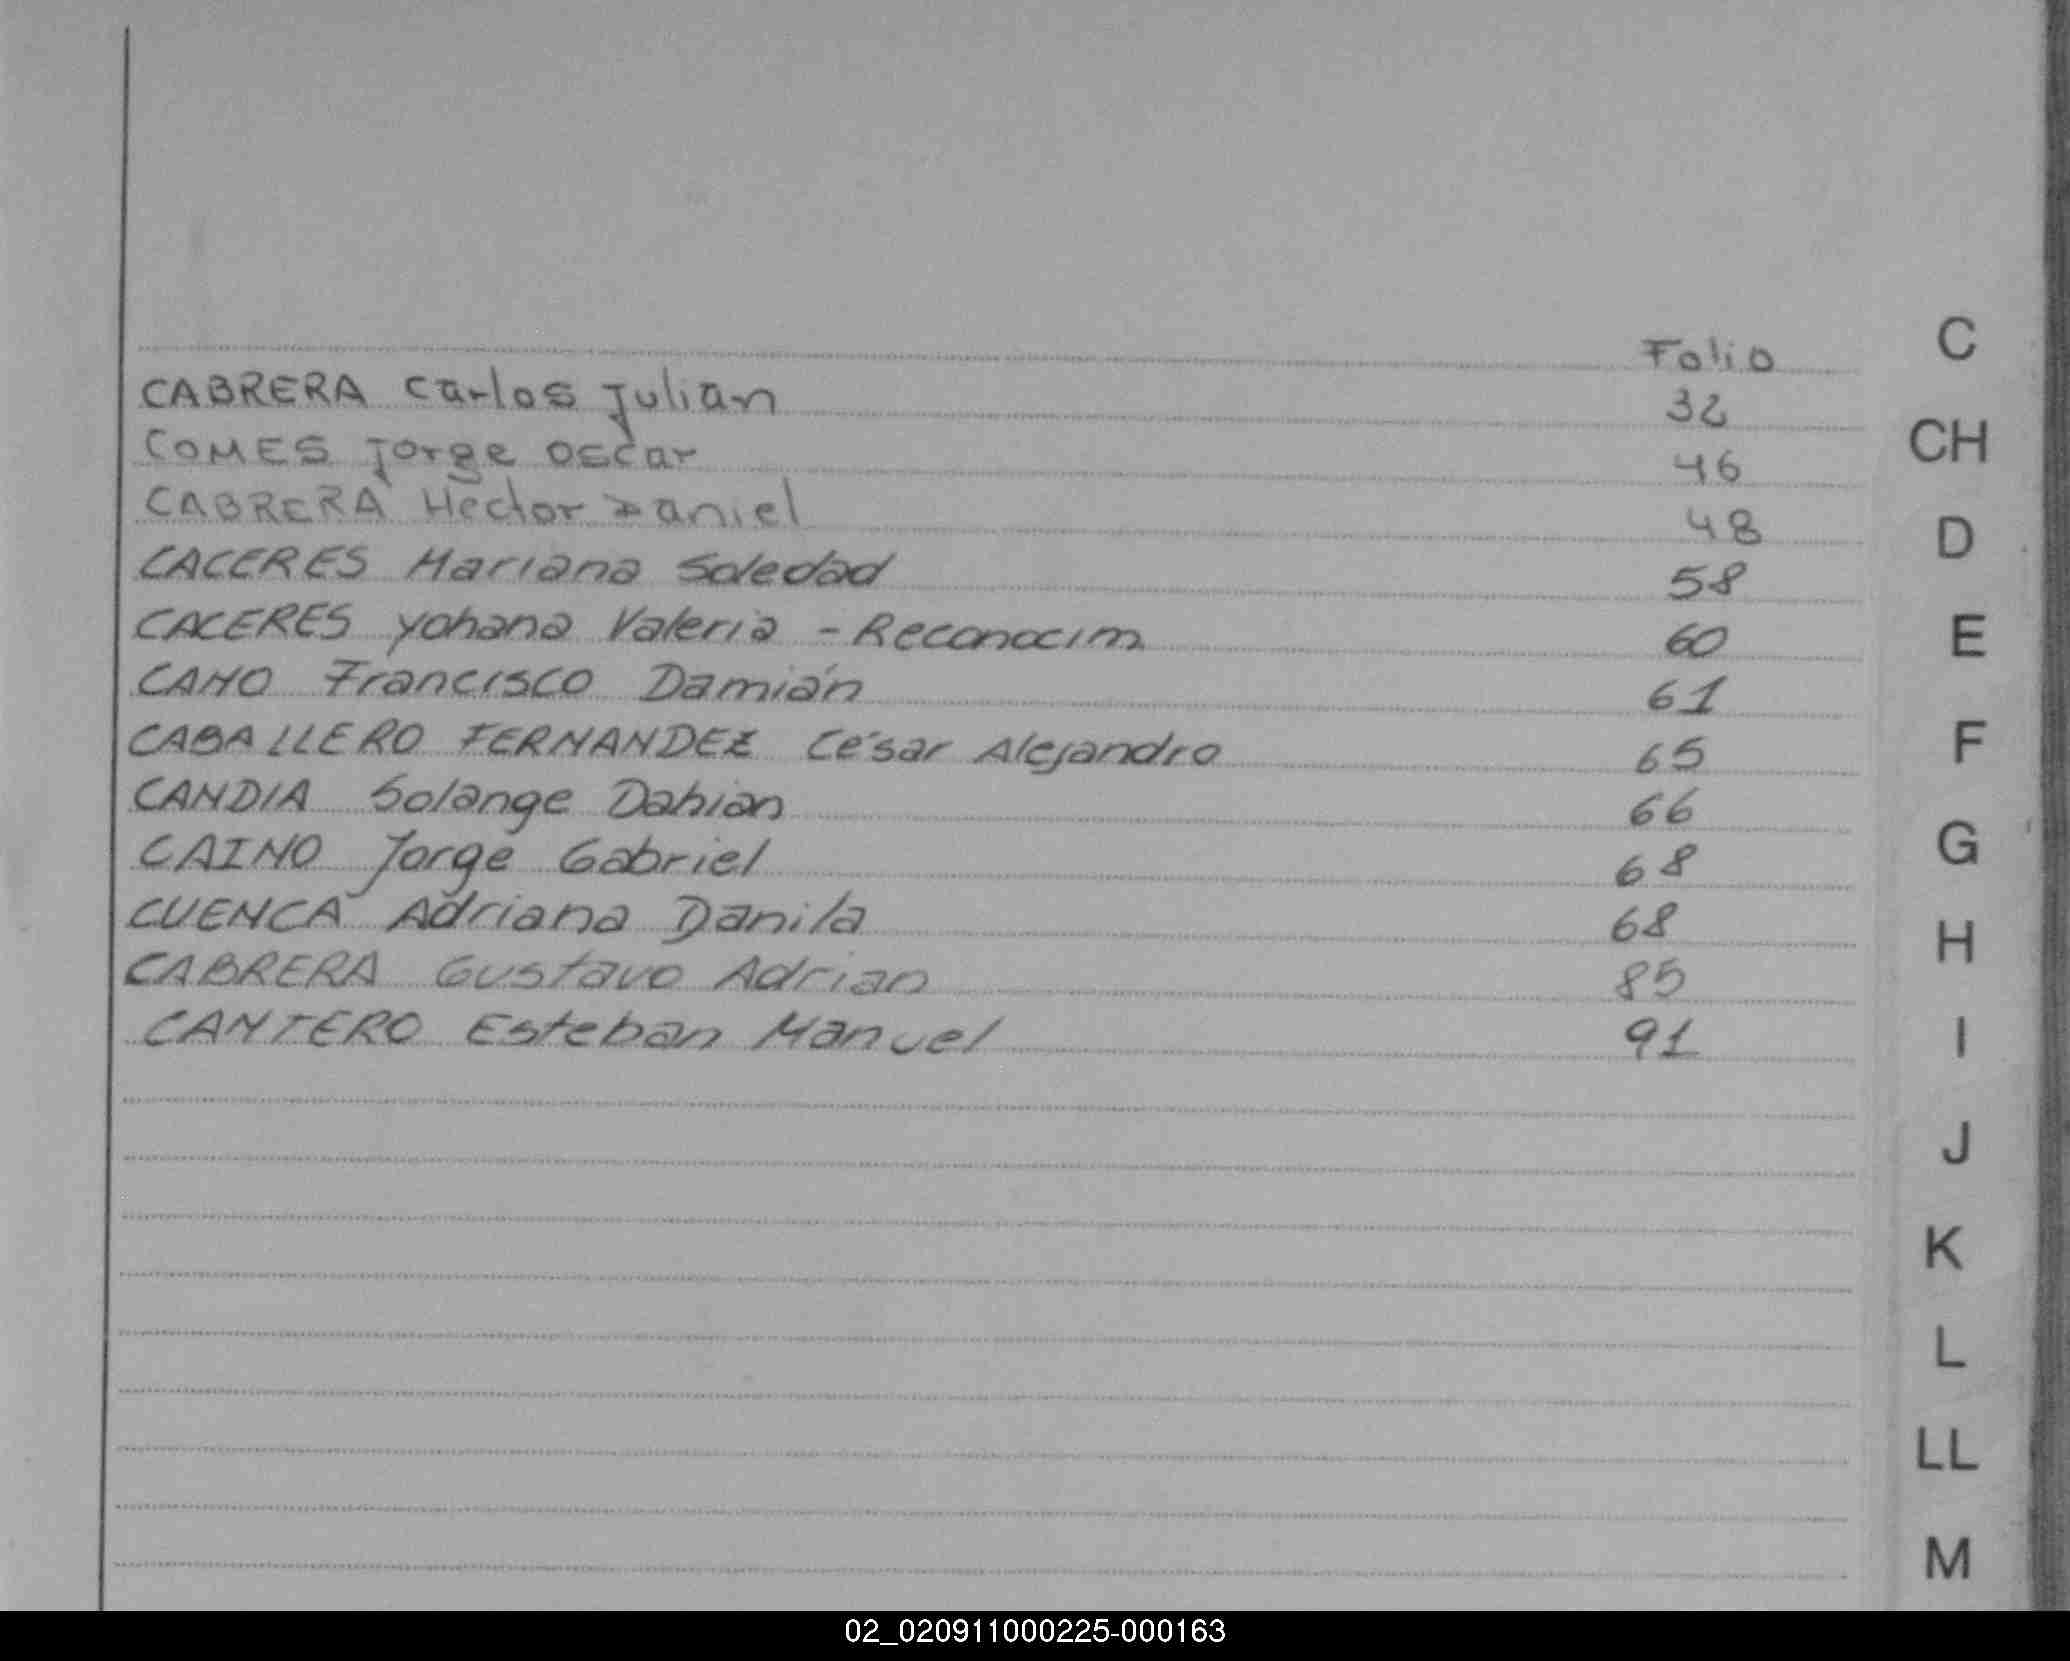 Folio
CABRERA Carlos Julián 32
COMES Jorge Oscar 46
CABRERA Hector Daniel 48
CACERES Mariana Soledad 58
CACERES Yohana Valeria - Reconocim 60
CANO Francisco Damián 61
CABALLERO FERNANDEZ César Alejandro 65
CANDIA Solange Dahian 66
CAINO Jorge Gabriel 68
CUENCA Adriana Danila 68
CABRERA Gustavo Adrian 85
CANTERO Esteban Manuel 91
C
CH
D
E
F
G
H
I
J
K
L
LL
M
02_020911000225-000163